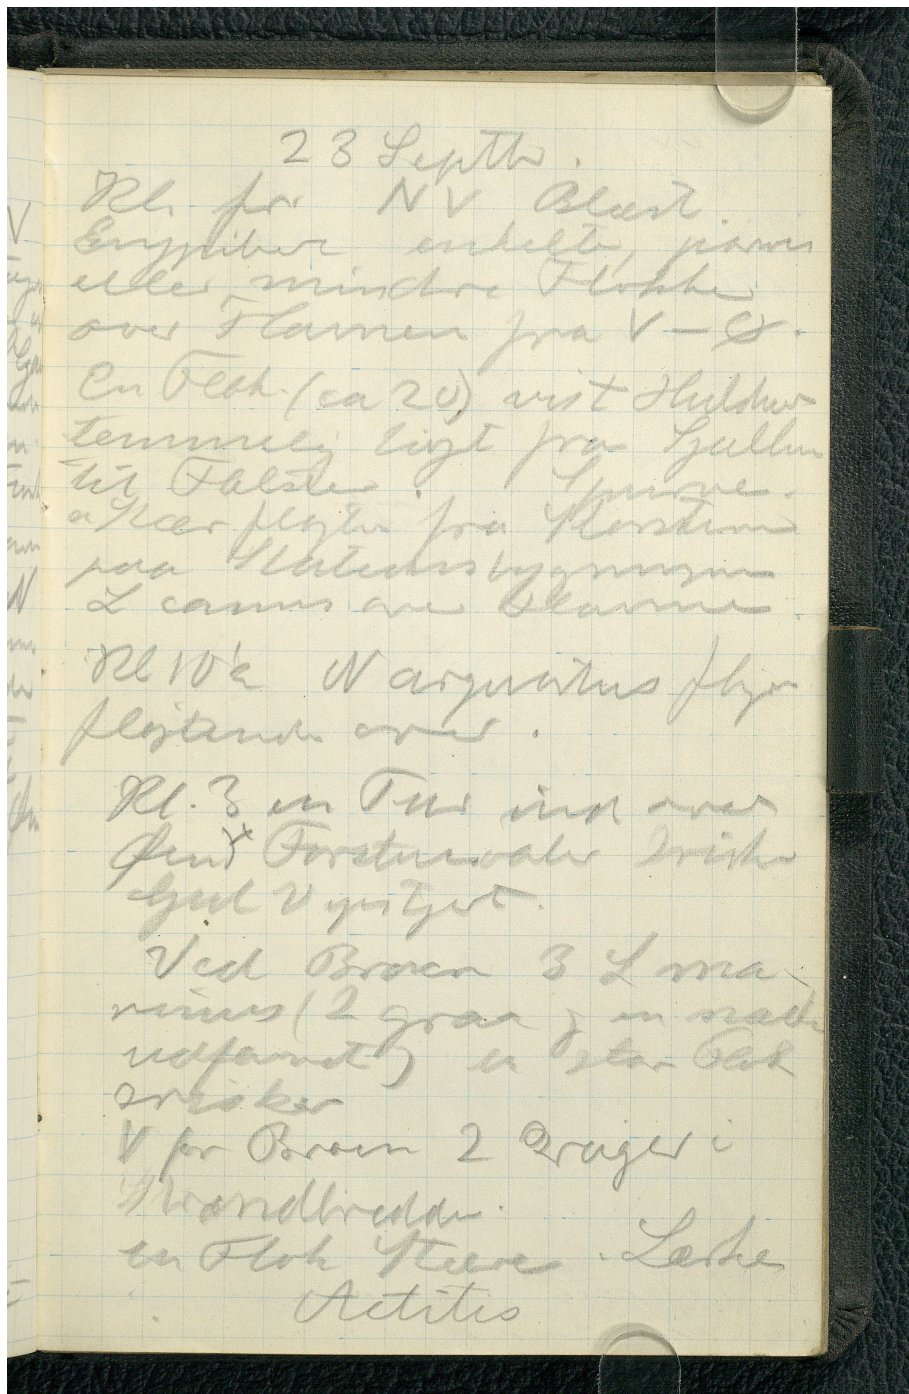 23 Septbr.
Kl. før NV Blæst.
Engpiber enkelte, parvis
eller mindre Flokke
over Havnen fra V – Ø.
En Flok (ca 20) vist Hulduer
temmelig lavt fra Sjælland
til Falster. Spurve.
Stær fløjter fra Skorsten
paa Stationsbygningen
L canus over Havnen
Kl 10½ N arquatus flyver
fløjtende over.
Kl. 3 en Tur ind over
Øen Forstuevaler Irisker
Gul Vipstjert.
Ved Broen 3 L ma-
rinus (2 graa & en næsten
udfarvet) en stor Flok
Irisker
V for Broen 2 Krager i
Strandbredden.
en Flok Stære. Lærke
Actitis